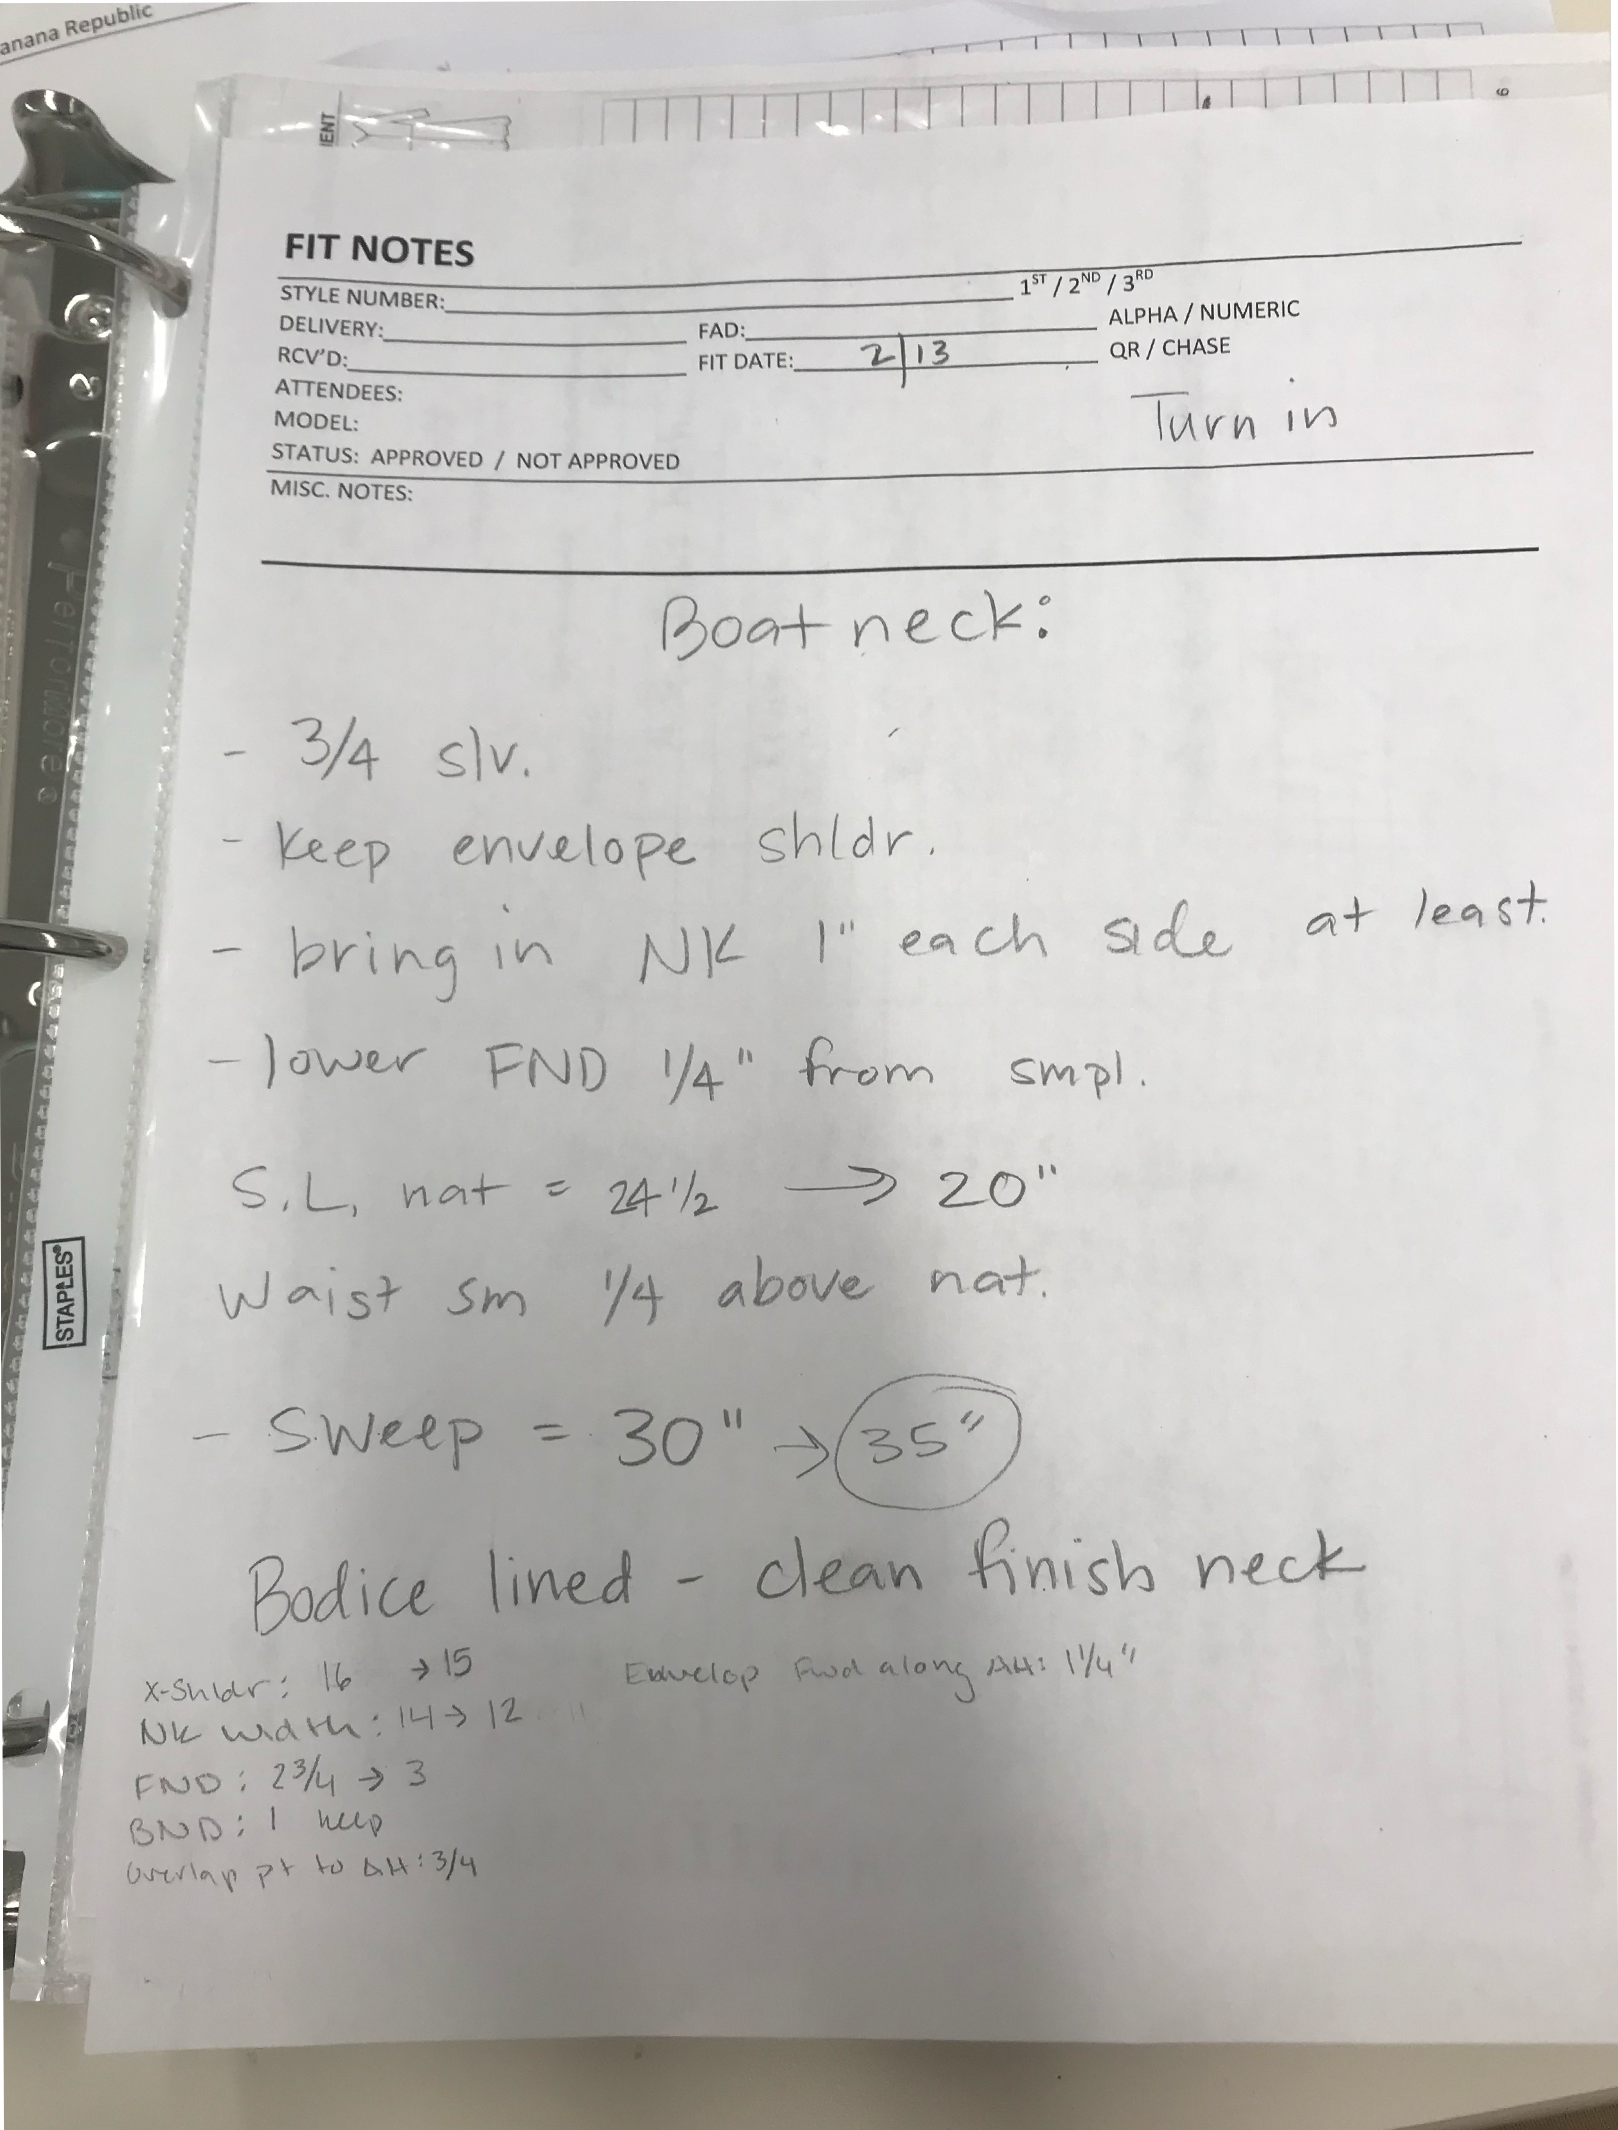 anana Republic
ENT
6
FIT NOTES
STYLE NUMBER: 1ST / 2ND / 3RD
DELIVERY: FAD: ALPHA / NUMERIC
RCV'D: FIT DATE: 2/13 QR / CHASE
ATTENDEES:
MODEL: Turn in
STATUS: APPROVED / NOT APPROVED
MISC. NOTES:
Boat neck:
- 3/4 slv.
- Keep envelope shldr.
- bring in NK 1" each side at least.
- lower FND 1/4" from smpl.
S.L. nat = 24 1/2 → 20"
Waist sm 1/4 above nat.
- Sweep = 30" → 35"
Bodice lined - clean finish neck
X-Shldr: 16 → 15
Envelop Fwd along AH: 1 1/4"
NK width: 14 → 12
FND: 2 3/4 → 3
BND: 1 keep
Overlap pt to AH: 3/4
Performore®
STAPLES®